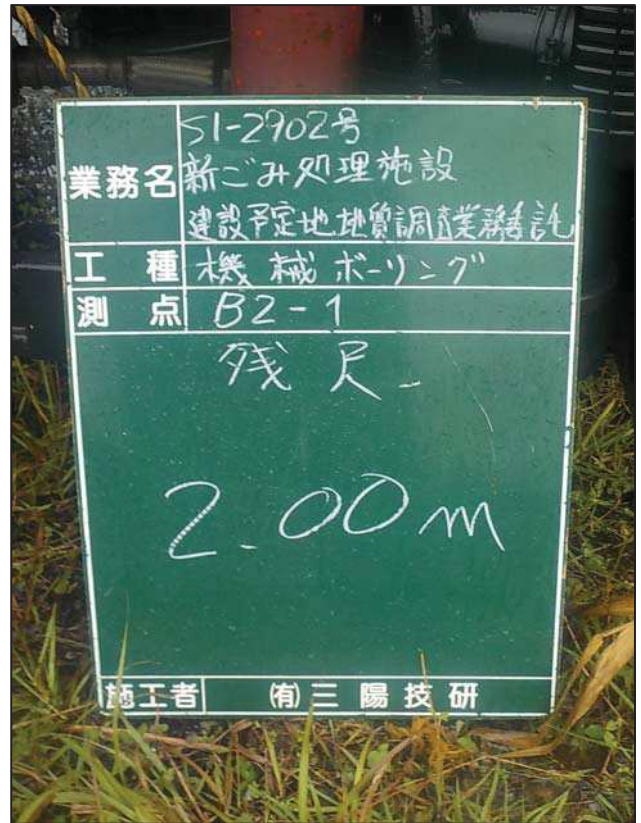 業務名
S1-2902号
新ごみ処理施設
建設予定地地質調査業務委託
工種 機械ボーリング
測点 B2-1
残尺
2.00m
施工者 (有)三陽技研